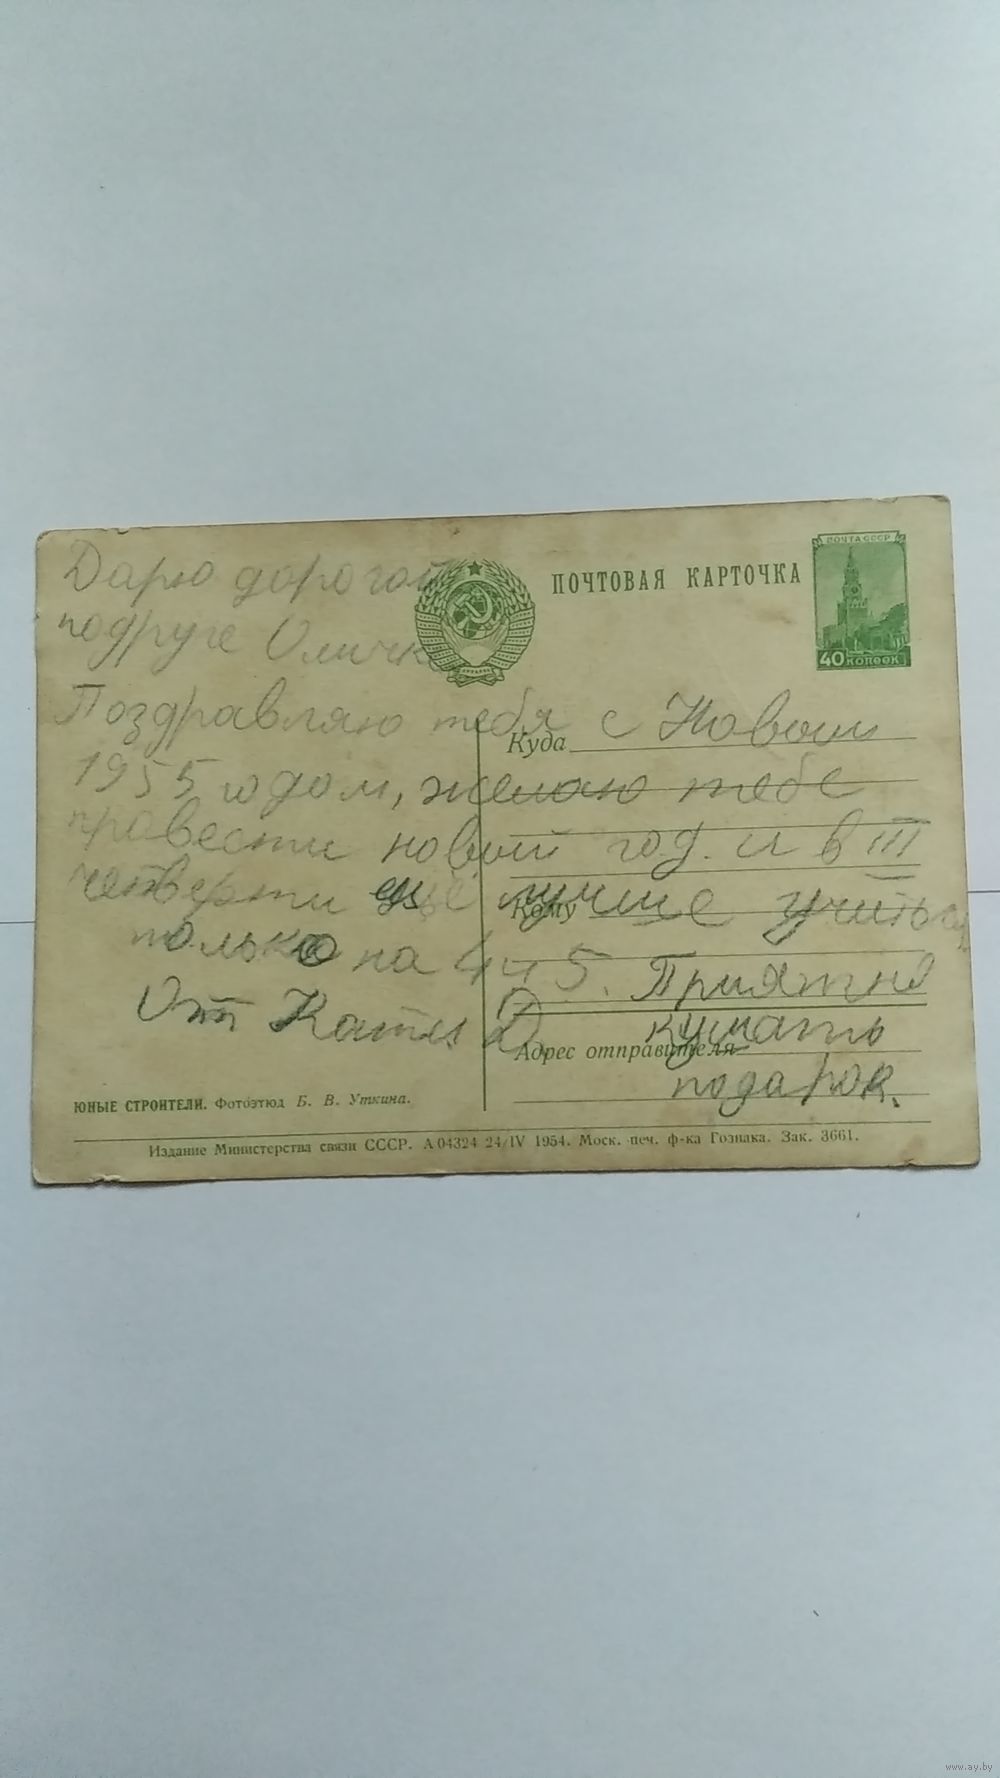 Дарю дорогой
подруге Оличке
ПОЧТОВАЯ КАРТОЧКА
ПОЧТА СССР
40 КОПЕЕК
Поздравляю тебя с Новым
Куда
1955 годом, желаю тебе
провести новый год. и в III
четверти ещё лучше учиться
Кому
только на 4 и 5. Приятно
От Кати Д. кушать
Адрес отправителя
подарок.
ЮНЫЕ СТРОИТЕЛИ. Фотоэтюд Б. В. Уткина.
Издание Министерства связи СССР. А 04324 24/IV 1954. Моск. печ. ф-ка Гознака. Зак. 3661.
www.ay.by